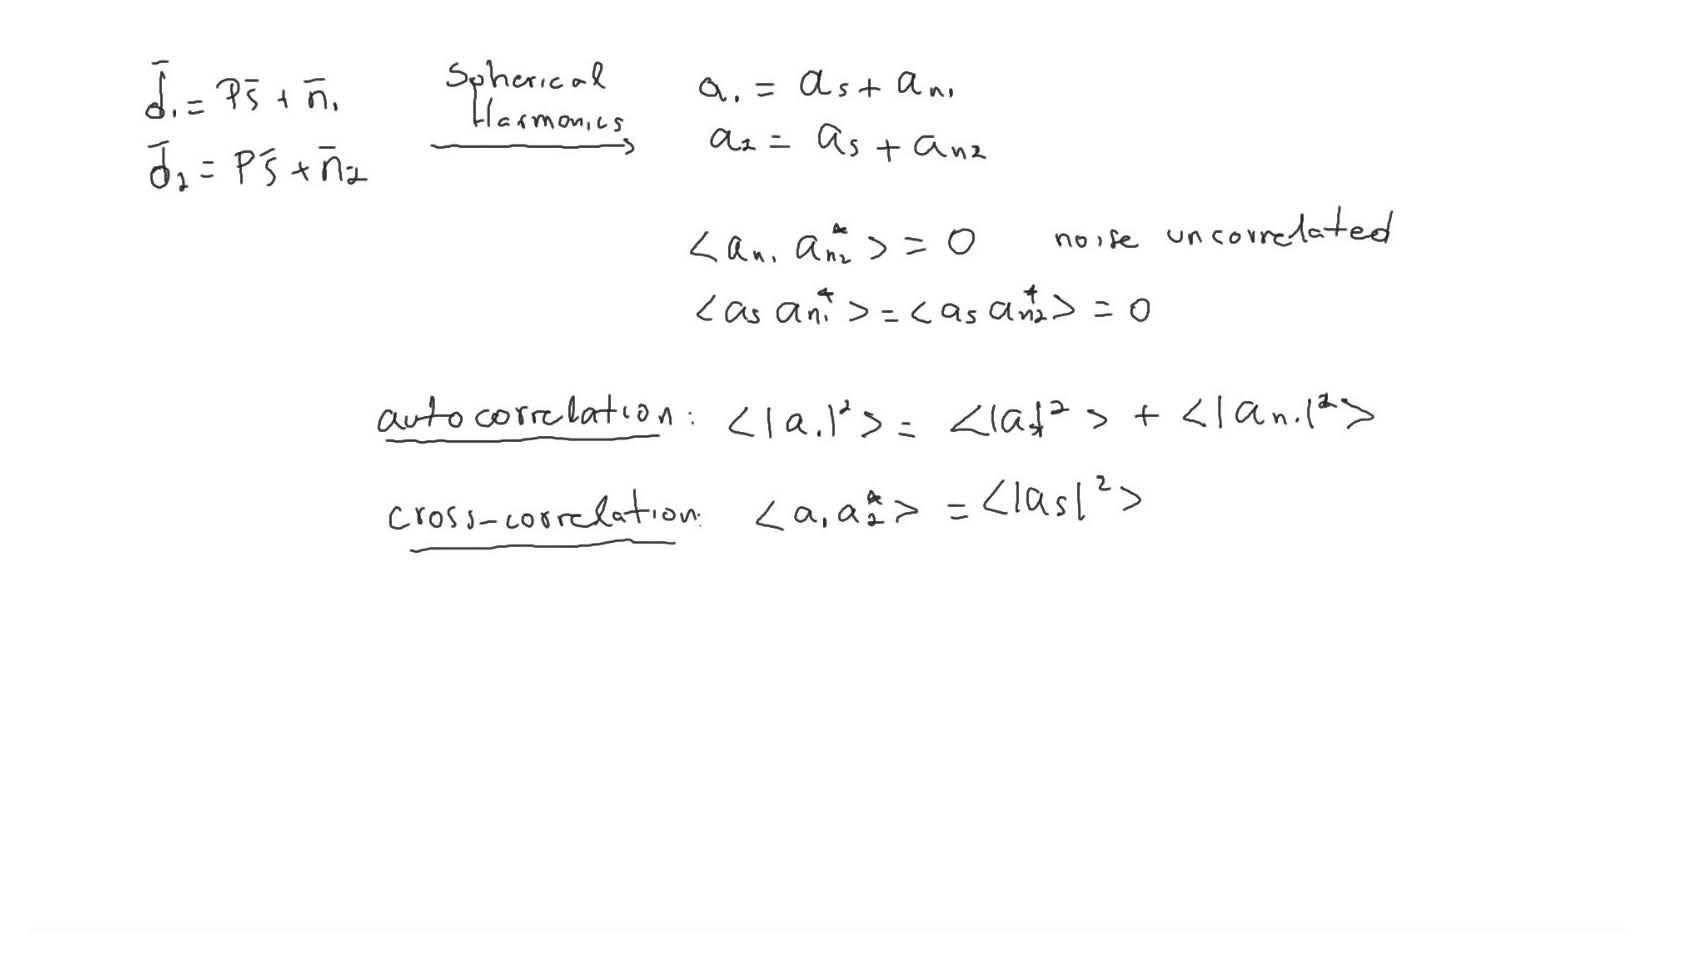 d̄₁ = Ps̄ + n̄₁ Spherical Harmonics → a₁ = aₛ + aₙ₁
d̄₂ = Ps̄ + n̄₂ a₂ = aₛ + aₙ₂
<aₙ₁ aₙ₂*> = 0 noise uncorrelated
<aₛ aₙ₁*> = <aₛ aₙ₂*> = 0
autocorrelation: <|a₁|²> = <|aₛ|²> + <|aₙ₁|²>
cross-correlation: <a₁ a₂*> = <|aₛ|²>